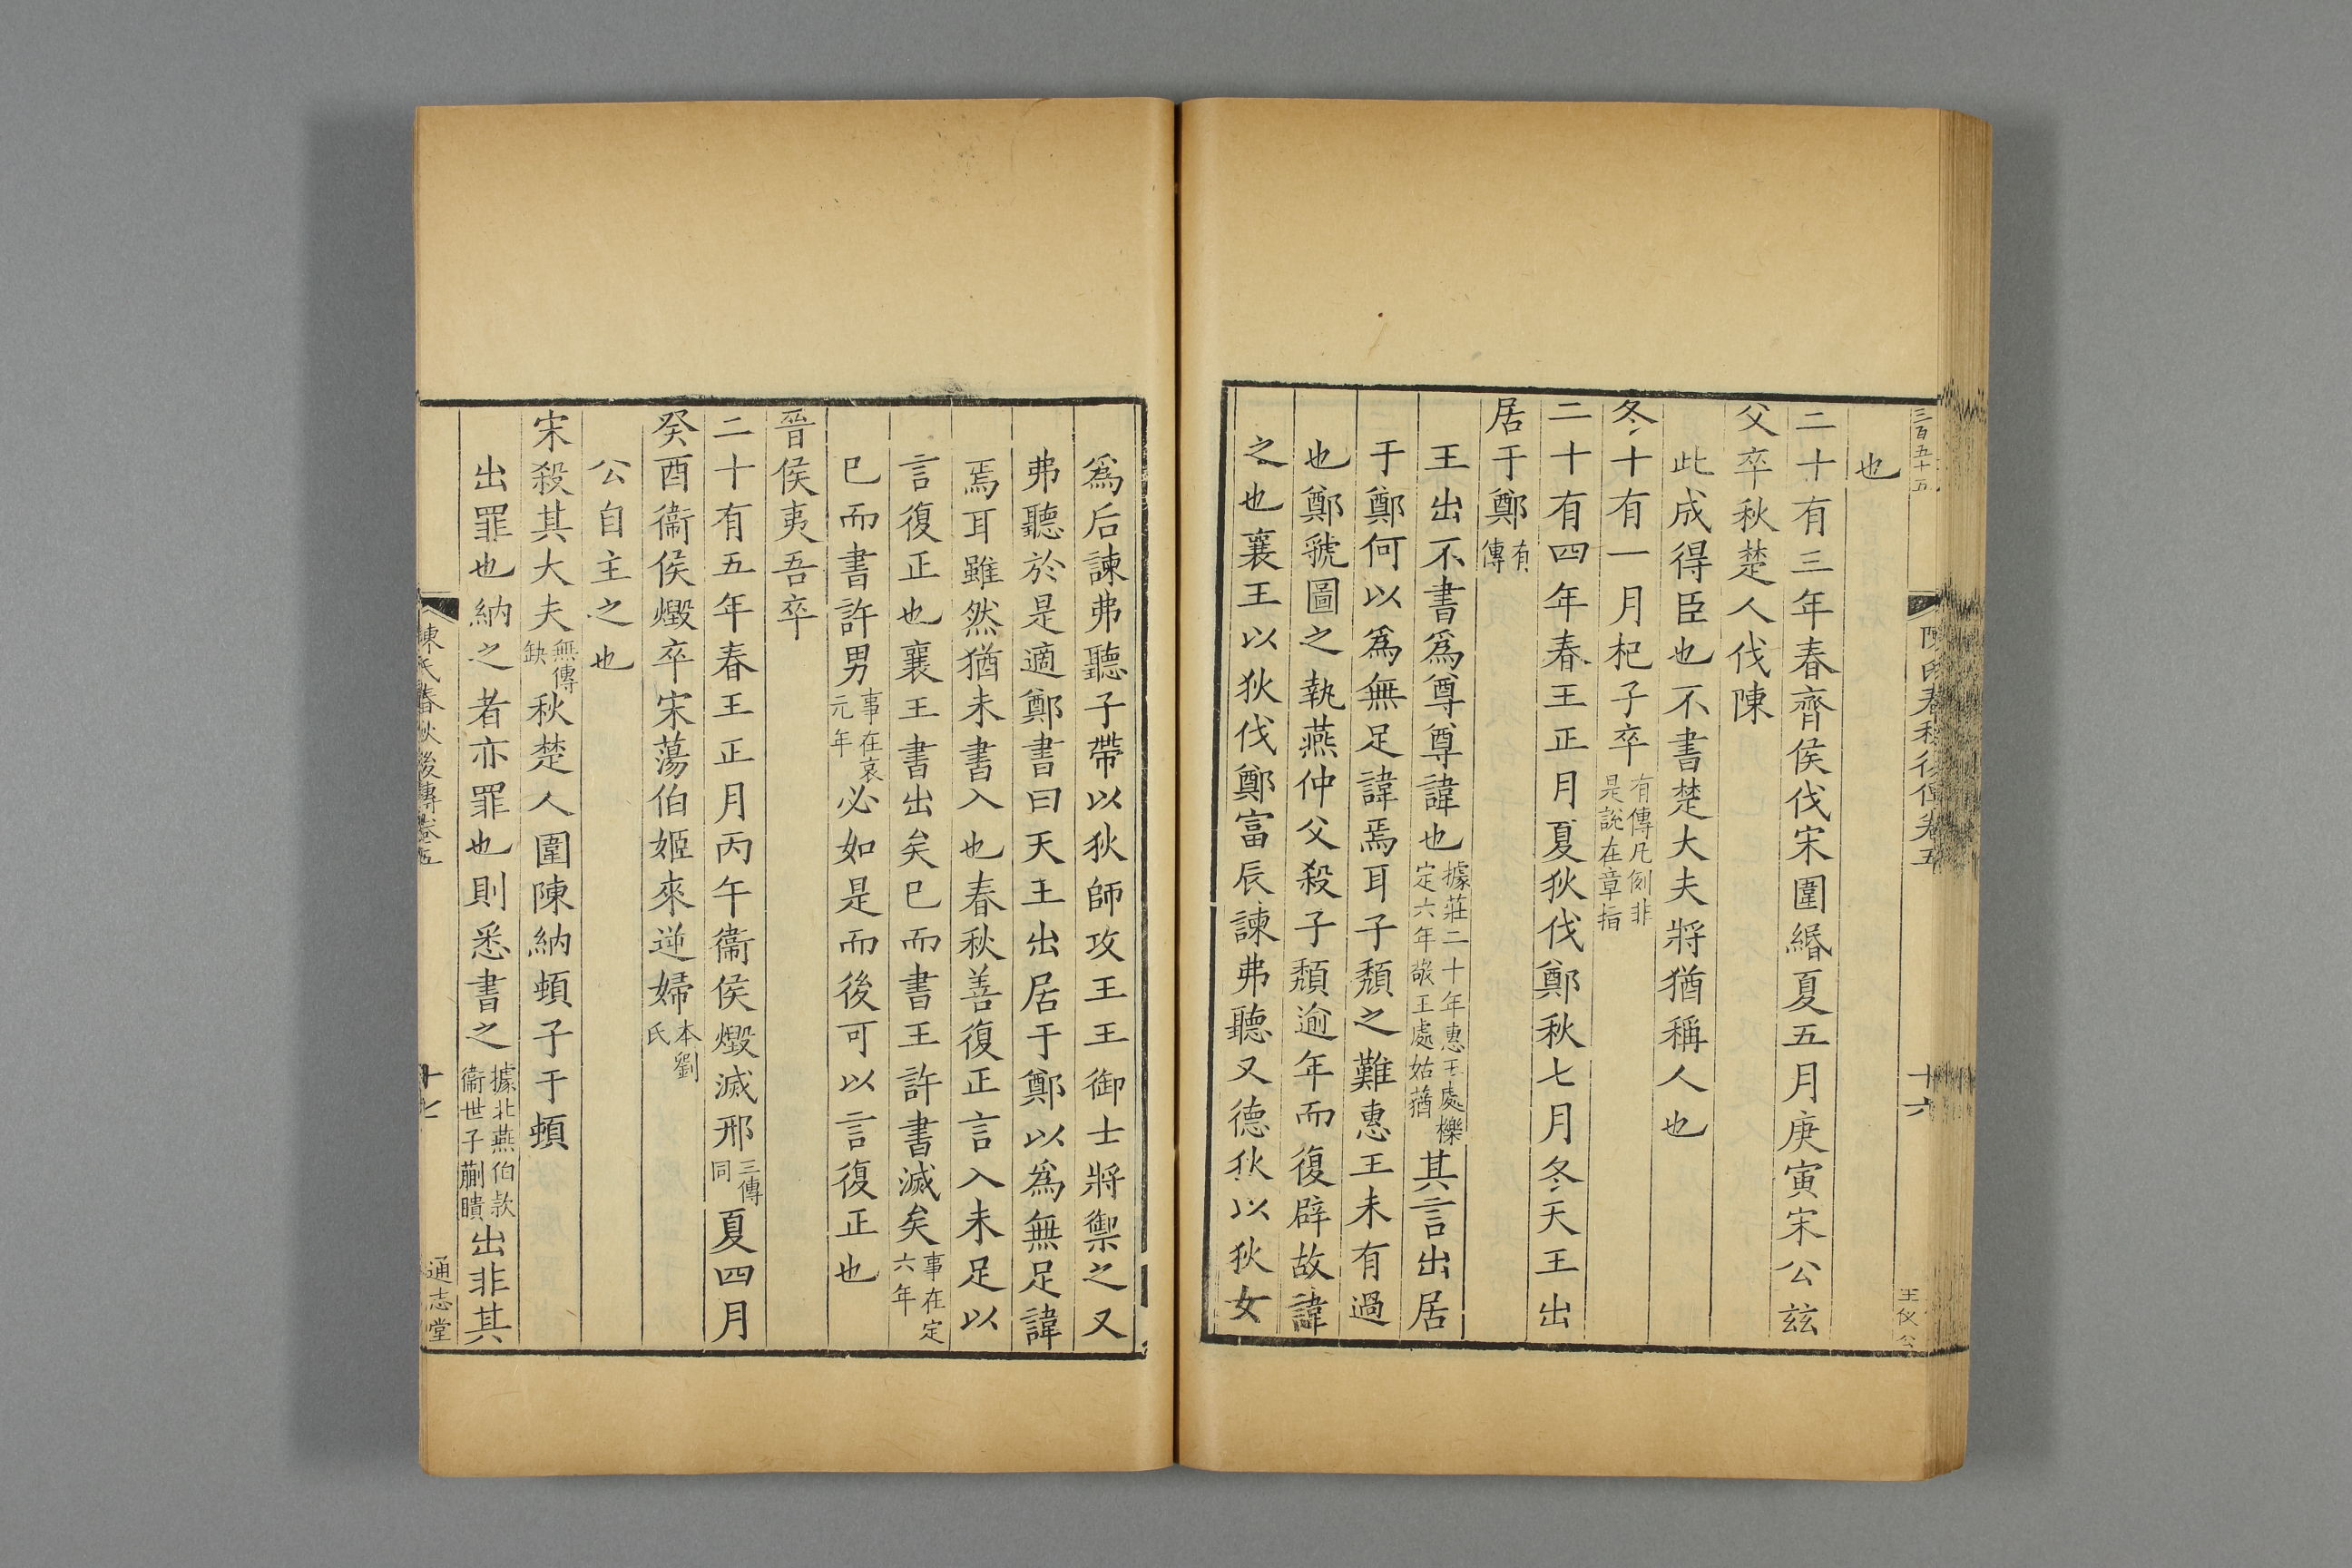 三百五十五
陳氏春秋後傳卷五
十六
也
二十有三年春齊侯伐宋圍緡夏五月庚寅宋公茲
父卒秋楚人伐陳
此成得臣也不書楚大夫將猶稱人也
冬十有一月杞子卒有傳凡例非是說在章指
二十有四年春王正月夏狄伐鄭秋七月冬天王出
居于鄭有傳
王出不書爲尊尊諱也據莊二十年惠王處櫟定六年敬王處姑蕕其言出居
于鄭何以爲無足諱焉耳子頹之難惠王未有過
也鄭虢圖之執燕仲父殺子頹逾年而復辟故諱
之也襄王以狄伐鄭富辰諫弗聽又德狄以狄女
爲后諫弗聽子帶以狄師攻王王御士將禦之又
弗聽於是適鄭書曰天王出居于鄭以爲無足諱
焉耳雖然猶未書入也春秋善復正言入未足以
言復正也襄王書出矣巳而書王許書滅矣事在定六年
巳而書許男事在哀元年必如是而後可以言復正也
晉侯夷吾卒
二十有五年春王正月丙午衞侯燬滅邢三傳同夏四月
癸酉衞侯燬卒宋蕩伯姬來逆婦本劉氏
公自主之也
宋殺其大夫無傳缺秋楚人圍陳納頓子于頓
出罪也納之者亦罪也則悉書之據北燕伯款衞世子蒯聵出非其
陳氏春秋後傳卷五
十七
通志堂